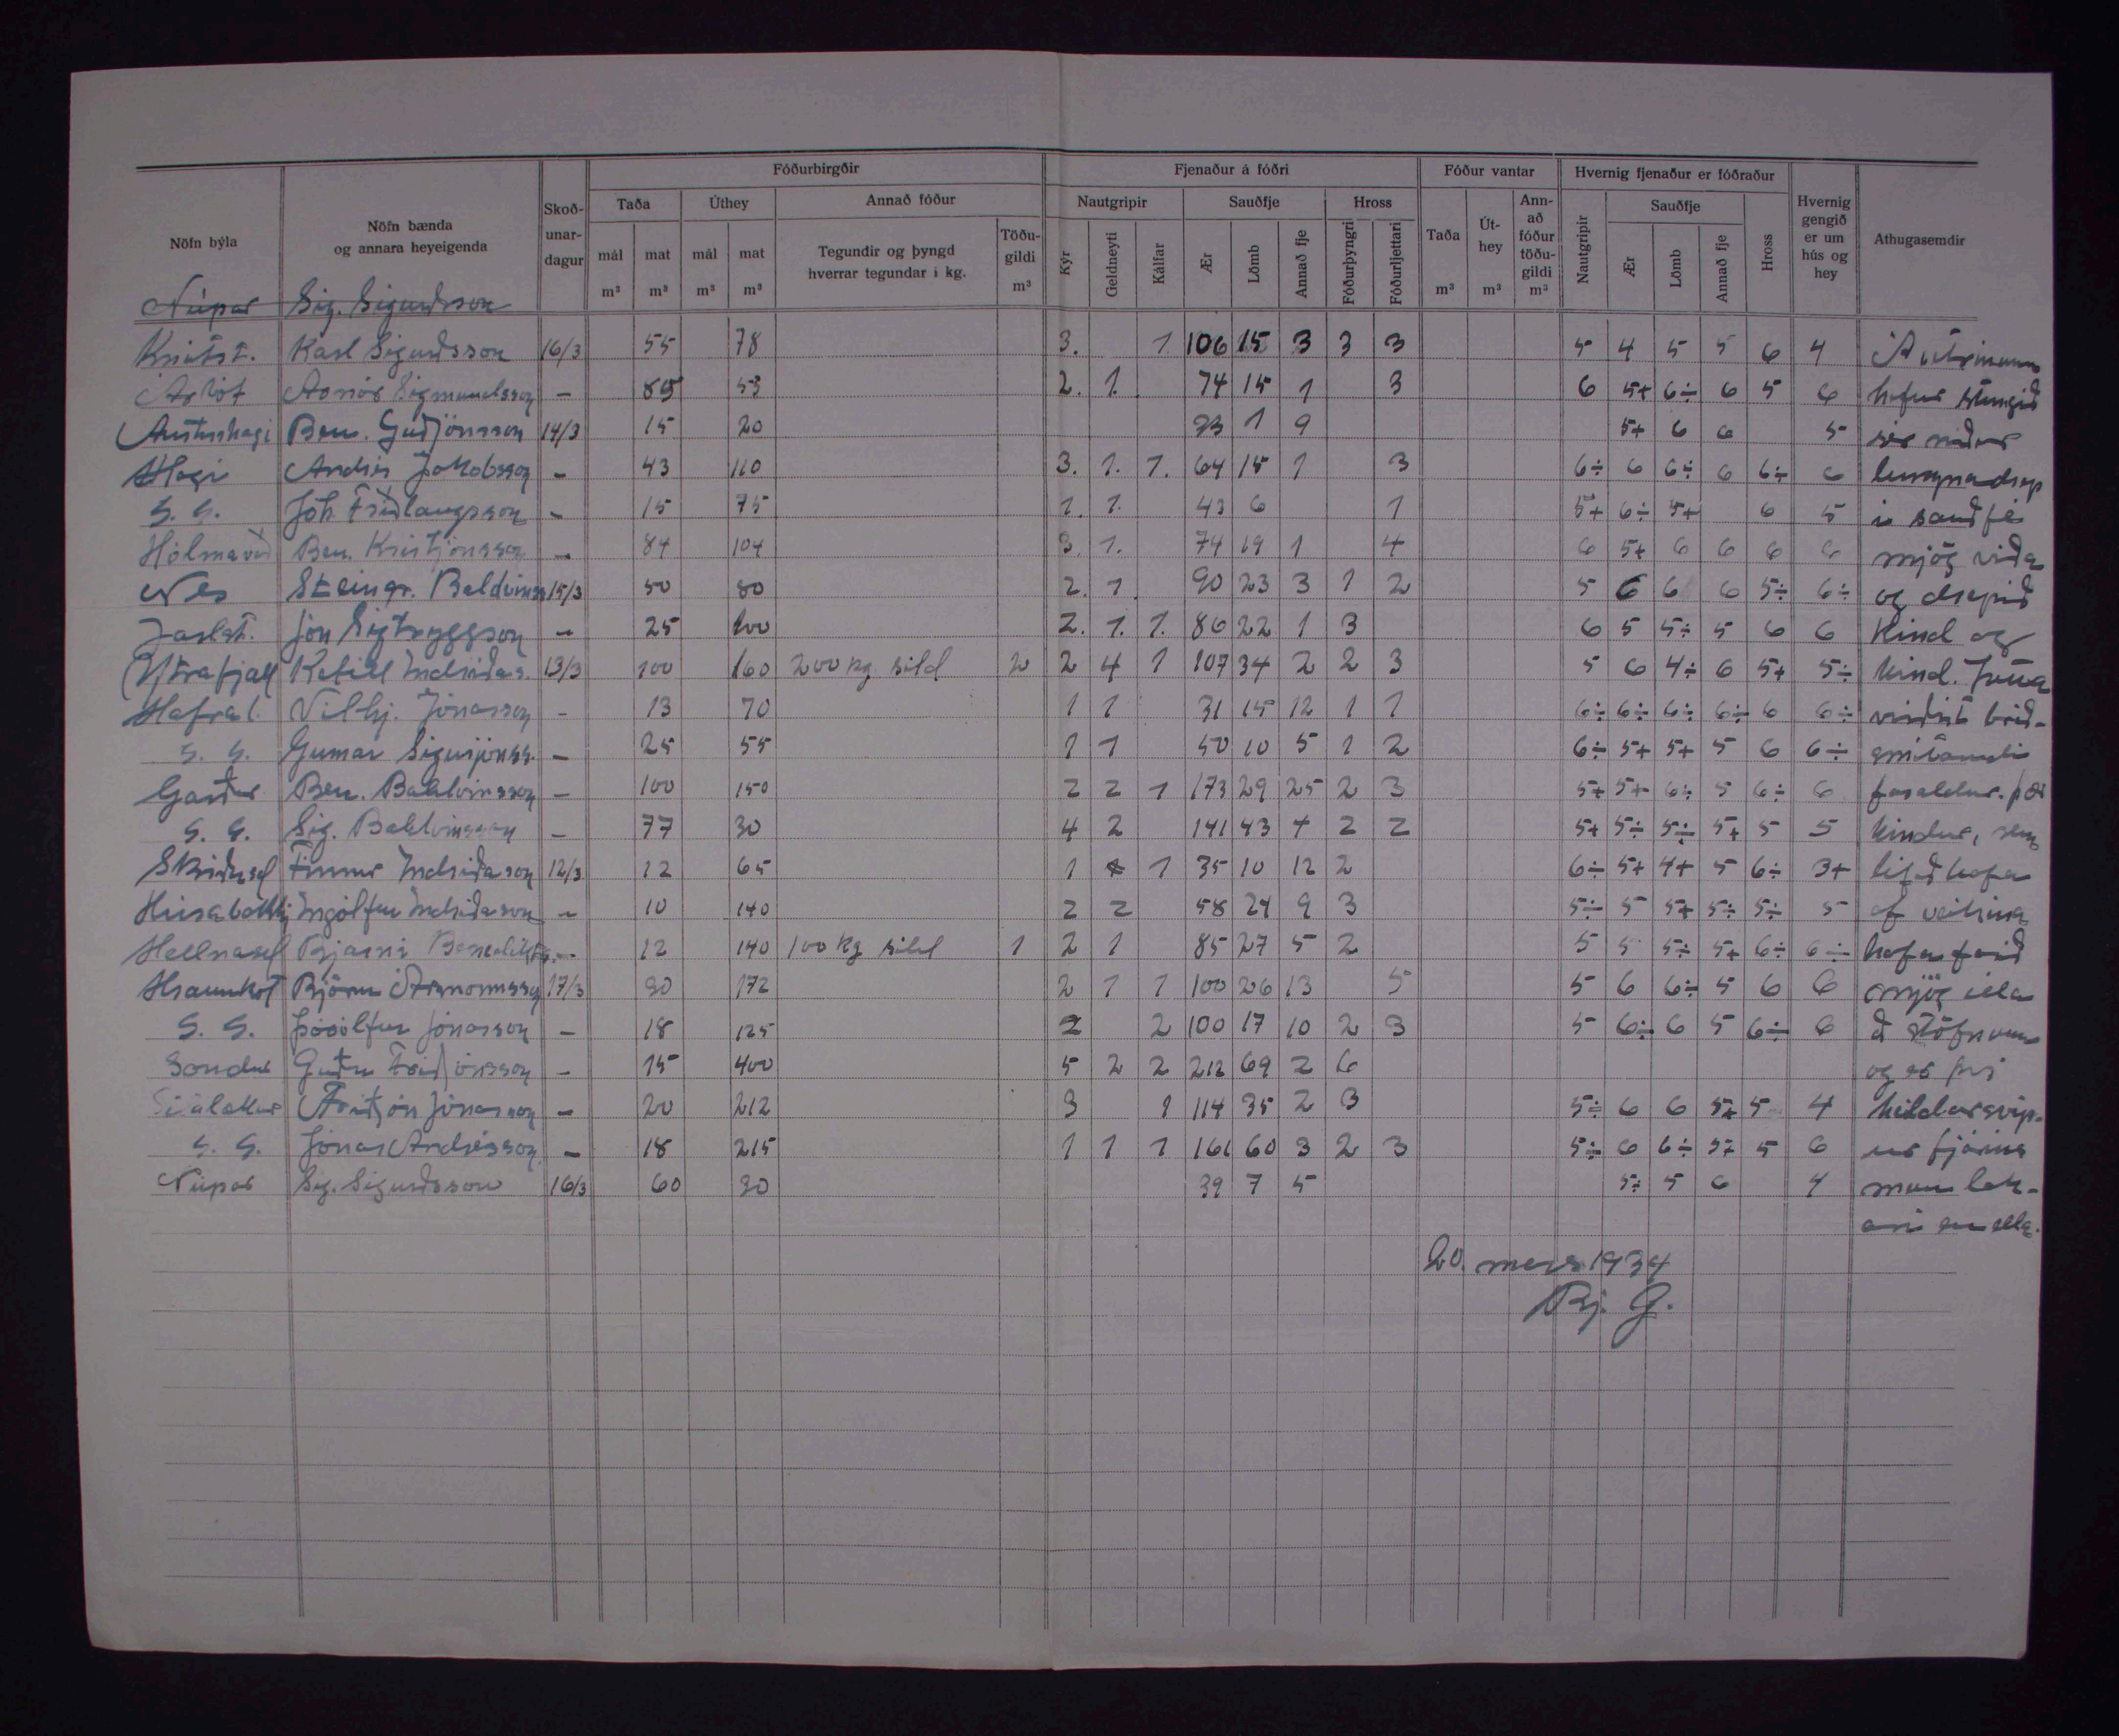 Fóðurbirgðir Fjenaður á fóðri Fóður vantar Hvernig fjenaður er fóðraður
Nöfn býla Nöfn bænda og annara heyeigenda Skoð-unar-dagur Taða Úthey Annað fóður Nautgripir Sauðfje Hross Taða Út-hey Ann-að fóður töðu-gildi Nautgripir Sauðfje Hross Hvernig gengið er um hús og hey Athugasemdir
mál mat mál mat Tegundir og þyngd hverrar tegundar í kg. Töðu-gildi Kýr Geldneyti Kálfar Ær Lömb Annað fje Fóðurþyngri Fóðurljettari Ær Lömb Annað fje
m³ m³ m³ m³ m³ m³ m³ m³
Núpar Sig. Sigurðsson
Knútst. Karl Sigurðsson 16/3 55 78 3. 1 106 15 3 3 3 5 4 5 5 6 4
Árbót Arnór Sigmundsson – 85 53 2. 1. 74 15 1 3 6 5+ 6÷ 6 5 6 hefur stungið
Austurhagi Ben. Guðjónsson 14/3 15 20 23 1 9 5+ 6 6 5 sér niður
Hagi Andrés Jakobsson – 43 110 3. 1. 1. 64 15 1 3 6÷ 6 6÷ 6 6÷ 6 lungnadrep
S. S. Jóh. Friðlaugsson – 15 75 1. 1. 43 6 1 5+ 6÷ 5+ 6 5 í sauðfé
Hólmavað Ben. Kristjónsson – 84 104 3. 1. 74 19 1 4 6 5+ 6 6 6 6 mjög víða
Nes Steingr. Baldvinss 15/3 50 80 2. 1. 90 23 3 1 2 5 6 6 6 5÷ 6÷ og drepið
Jarlst. Jón Sigtryggsson – 25 200 2. 1. 1. 86 22 1 3 6 5 5÷ 5 6 6 kind og
Ytrafjall Ketill Indriðas. 13/3 100 160 200 kg síld 2 2 4 1 107 34 2 2 3 5 6 4÷ 6 5+ 5÷ kind.
Hafral. Vilhj. Jónasson – 13 70 1 1 31 15 12 1 1 6÷ 6÷ 6÷ 6÷ 6 6÷ virðist bráð-
S. S. Gunnar Sigurjónss. – 25 55 1 1 50 10 5 1 2 6÷ 5+ 5+ 5 6 6÷ smitandi
Garður Ben. Baldvinsson – 100 150 2 2 1 173 29 25 2 3 5+ 5+ 6÷ 5 6÷ 6 faraldur. þær
S. S. Sig. Baldvinsson – 77 30 4 2 141 43 4 2 2 5+ 5÷ 5÷ 5+ 5 5 kindur, sem
Skriðusel Finnur Indriðason 12/3 12 65 1 1 35 10 12 2 6÷ 5+ 4+ 5 6÷ 3+ lifað hafa
Húsabakki Ingólfur Indriðason – 10 140 2 2 58 24 9 3 5÷ 5 5+ 5÷ 5÷ 5 af veikina
Hellnasel Bjarni Benediktss. – 12 140 100 kg síld 1 2 1 85 27 5 2 5 5 5÷ 5+ 6÷ 6÷ hafa farið
Hraunkot Björn Ármannsson 17/3 30 172 2 1 1 100 26 13 5 5 6 6÷ 5 6 6 mjög illa
S. S. Þórólfur Jónasson – 18 125 2 2 100 17 10 2 3 5 6÷ 6 5 6÷ 6 á stöfnum
Sandur Guðm Friðjónsson – 15 400 5 2 2 212 69 2 6 og er því
Sílalækur Friðjón Jónasson – 20 212 3 1 114 35 2 3 5÷ 6 6 5+ 5 4 heildarsvip-
S. S. Jónas Andrésson – 18 215 1 1 1 161 60 3 2 3 5÷ 6 6÷ 5+ 5 6 ur fjárins
Núpar Sig. Sigurðsson 16/3 60 30 39 7 5 5÷ 5 6 4 mun lak-
ari en ella.
20. mars 1934
Bj. G.